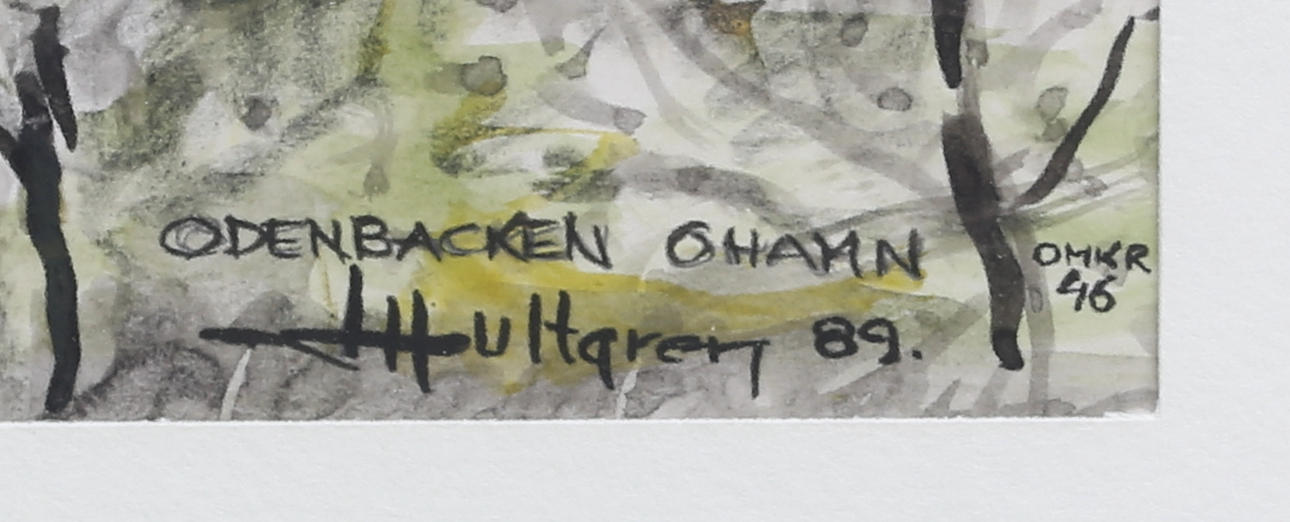 ODENBACKEN ÖHAMN
OMKR
46
Hultgren 89.